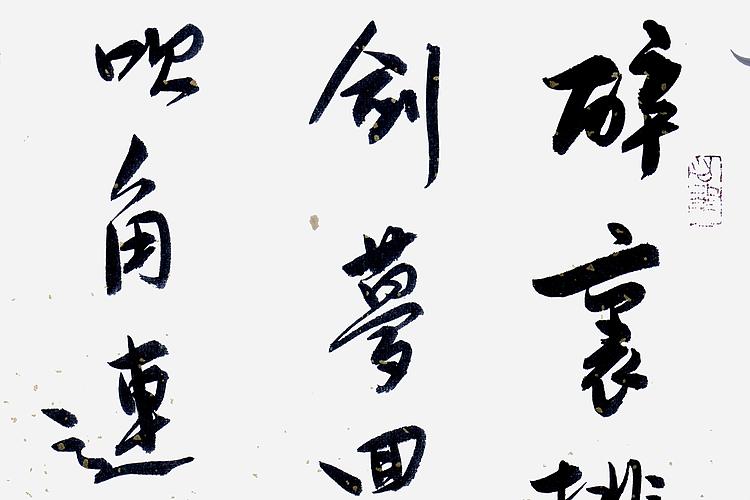 醉裏挑
劍夢回
吹角連